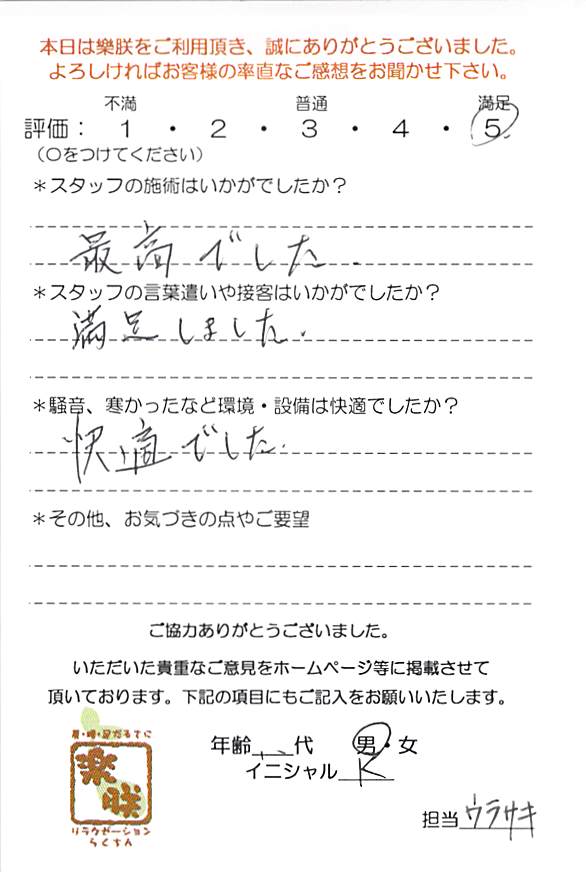 本日は樂朕をご利用頂き、誠にありがとうございました。
よろしければお客様の率直なご感想をお聞かせ下さい。
不満 普通 満足
評価： 1 ・ 2 ・ 3 ・ 4 ・ 5
（〇をつけてください）
＊スタッフの施術はいかがでしたか？
最高でした.
＊スタッフの言葉遣いや接客はいかがでしたか？
満足しました.
＊騒音、寒かったなど環境・設備は快適でしたか？
快適でした.
＊その他、お気づきの点やご要望
ご協力ありがとうございました。
いただいた貴重なご意見をホームページ等に掲載させて
頂いております。下記の項目にもご記入をお願いいたします。
年齢 代 男・女
イニシャル K
樂朕
リラクゼーション
らくちん
担当 ウラサキ